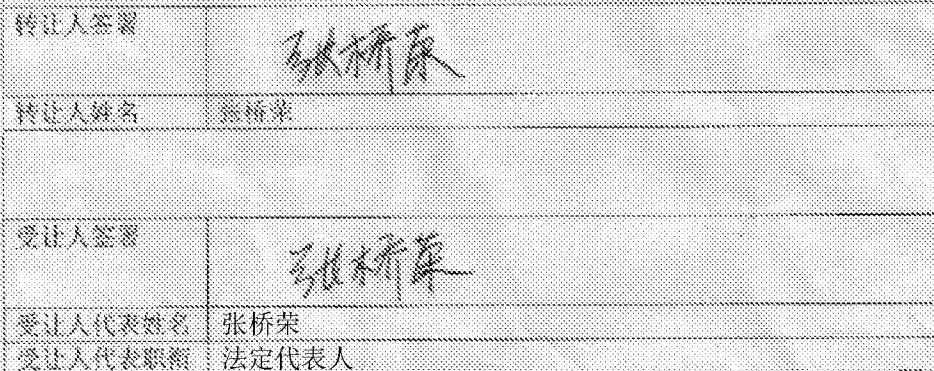 转让人签署 张桥荣
转让人姓名 张桥荣
受让人签署 张桥荣
受让人代表姓名 张桥荣
受让人代表职衔 法定代表人